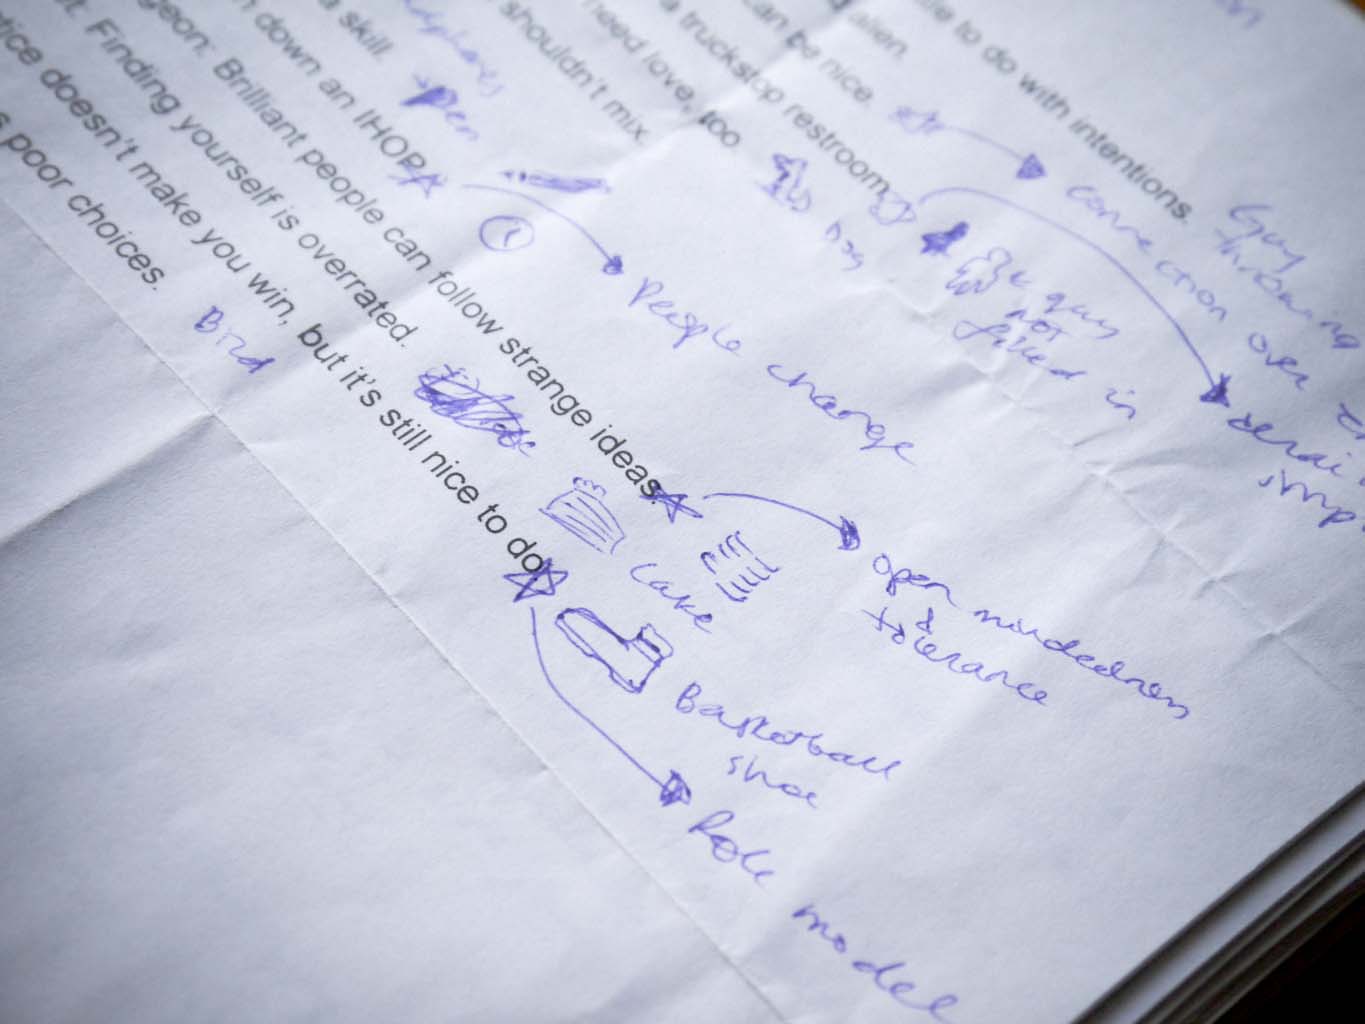 le to do with intentions.
alien.
can be nice.
a truckstop restroom.
need love, too.
shouldn't mix.
a skill.
n down an IHOP.
geon: Brilliant people can follow strange ideas.
t. Finding yourself is overrated.
tice doesn't make you win, but it's still nice to do.
s poor choices.
pen
Guy
throwing
connection over
Dog
guy
not
fixed in
1
People change
Bird
Cake
open mindedness
&
tolerance
Basketball
shoe
Role model